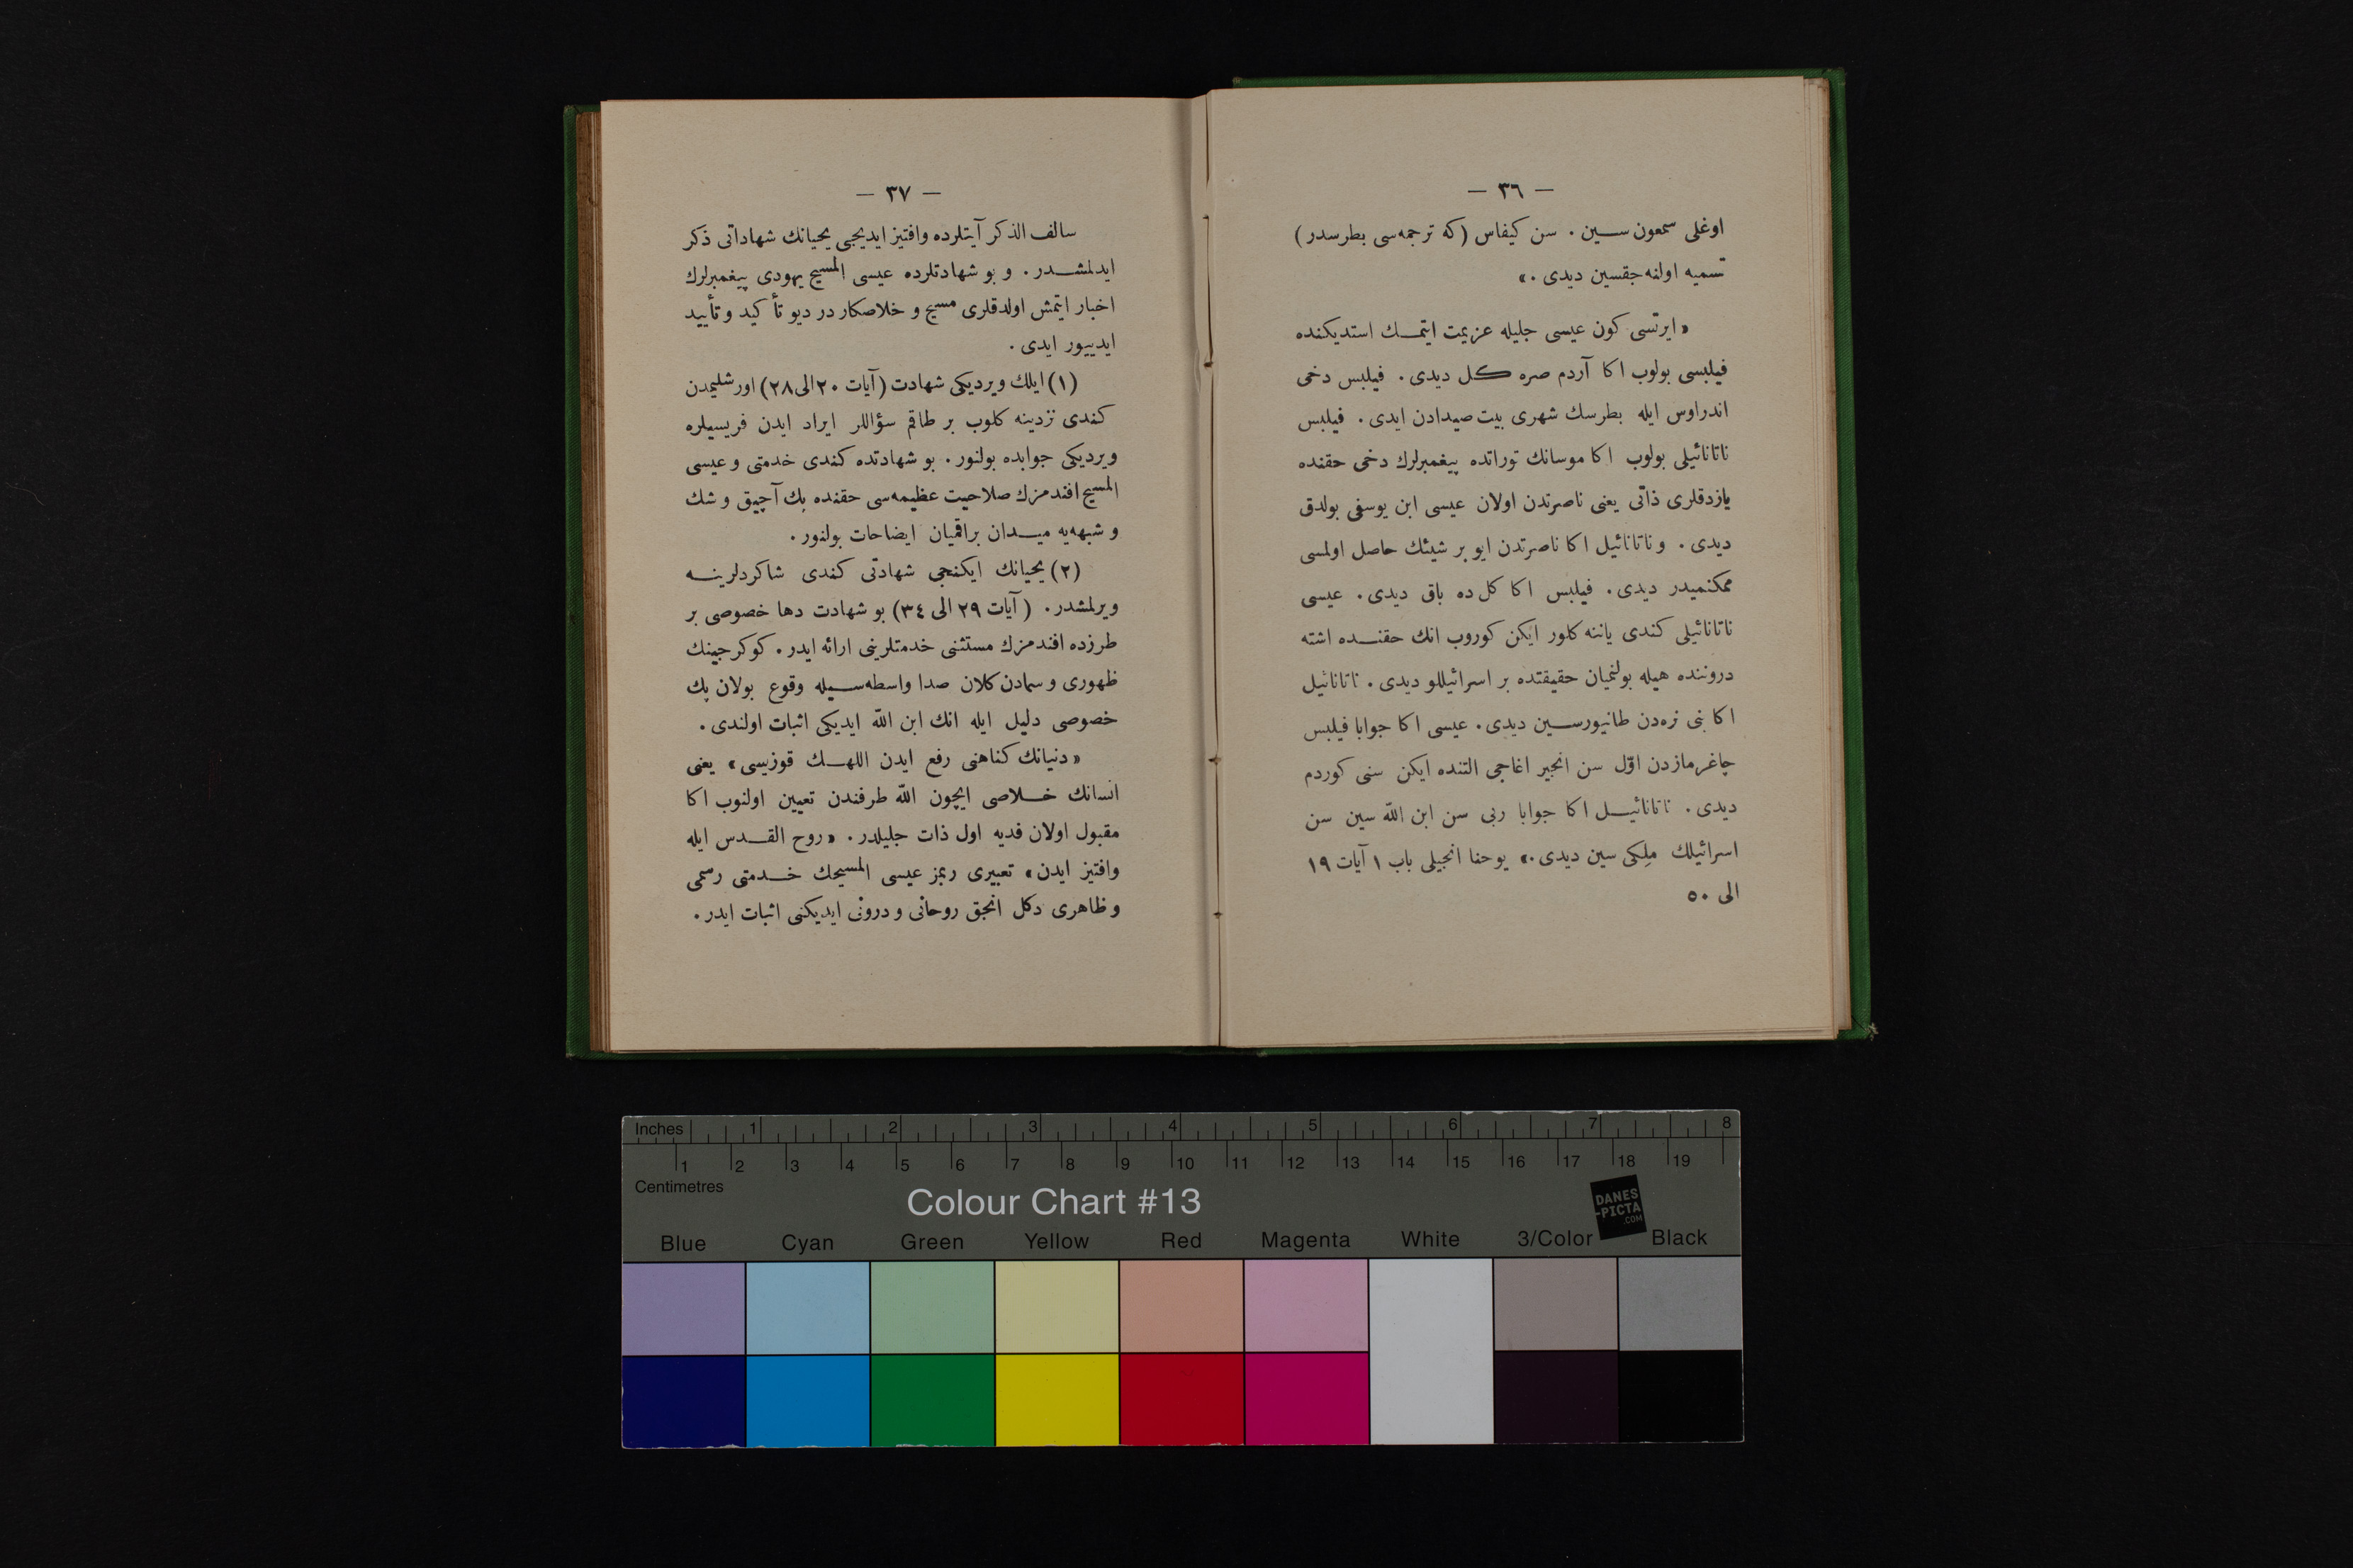 — ٣٦ —
اوغلی سمعون سین . سن کیفاس (که ترجمه‌سی بطرسدر)
تسمیه اولنه‌جقسین دیدی .»
«ایرتسی کون عیسی جلیله عزیمت ایتمك استدیکنده
فیلبسی بولوب اکا آردم صره کل دیدی . فیلبس دخی
اندراوس ایله بطرسك شهری بیت صیدادن ایدی . فیلبس
ناتانائیلی بولوب اکا موسانك توراتده پیغمبرلرك دخی حقنده
یازدقلری ذاتی یعنی ناصرتدن اولان عیسی ابن یوسفی بولدق
دیدی . و ناتانائیل اکا ناصرتدن ایو بر شیئك حاصل اولمسی
ممکنمیدر دیدی . فیلبس اکا کل ده باق دیدی . عیسی
ناتانائیلی کندی یاننه کلور ایکن کوروب انك حقنده اشته
دروننده هیله بولنمیان حقیقتده بر اسرائیللو دیدی . ناتانائیل
اکا بنی نره‌دن طانیورسین دیدی . عیسی اکا جوابا فیلبس
چاغرمازدن اوّل سن انجیر اغاجی التنده ایکن سنی کوردم
دیدی . ناتانائیل اکا جوابا ربی سن ابن اللّه سین سن
اسرائیلك مِلِکی سین دیدی .» یوحنا انجیلی باب ١ آیات ١٩
الی ٥٠
— ٣٧ —
سالف الذکر آیتلرده وافتیز ایدیجی یحیانك شهاداتی ذکر
ایدلمشدر . و بو شهادتلرده عیسی المسیح یهودی پیغمبرلرك
اخبار ایتمش اولدقلری مسیح و خلاصکار در دیو تأکید و تأیید
ایدییور ایدی .
(١) ایلك ویردیکی شهادت (آیات ٢٠ الی ٢٨) اورشلیمدن
کندی نزدینه کلوب بر طاقم سؤاللر ایراد ایدن فریسیلره
ویردیکی جوابده بولنور . بو شهادتده کندی خدمتی و عیسی
المسیح افندمزك صلاحیت عظیمه‌سی حقنده پك آچیق و شك
و شبهه‌یه میدان براقمیان ایضاحات بولنور .
(٢) یحیانك ایکنجی شهادتی کندی شاکردلرینه
ویرلمشدر . (آیات ٢٩ الی ٣٤) بو شهادت دها خصوصی بر
طرزده افندمزك مستثنی خدمتلرینی ارائه ایدر . کوکرجینك
ظهوری و سمادن کلان صدا واسطه‌سیله وقوع بولان پك
خصوصی دلیل ایله انك ابن اللّه ایدیکی اثبات اولندی .
«دنیانك کناهنی رفع ایدن اللهك قوزیسی» یعنی
انسانك خلاصی ایچون اللّه طرفندن تعیین اولنوب اکا
مقبول اولان فدیه اول ذات جلیلدر . «روح القدس ایله
وافتیز ایدن» تعبیری ربمز عیسی المسیحك خدمتی رسمی
و ظاهری دکل انجق روحانی و درونی ایدیکنی اثبات ایدر .
Inches 1 2 3 4 5 6 7 8
1 2 3 4 5 6 7 8 9 10 11 12 13 14 15 16 17 18 19
Centimetres
Colour Chart #13
DANES
-PICTA
.COM
Blue Cyan Green Yellow Red Magenta White 3/Color Black